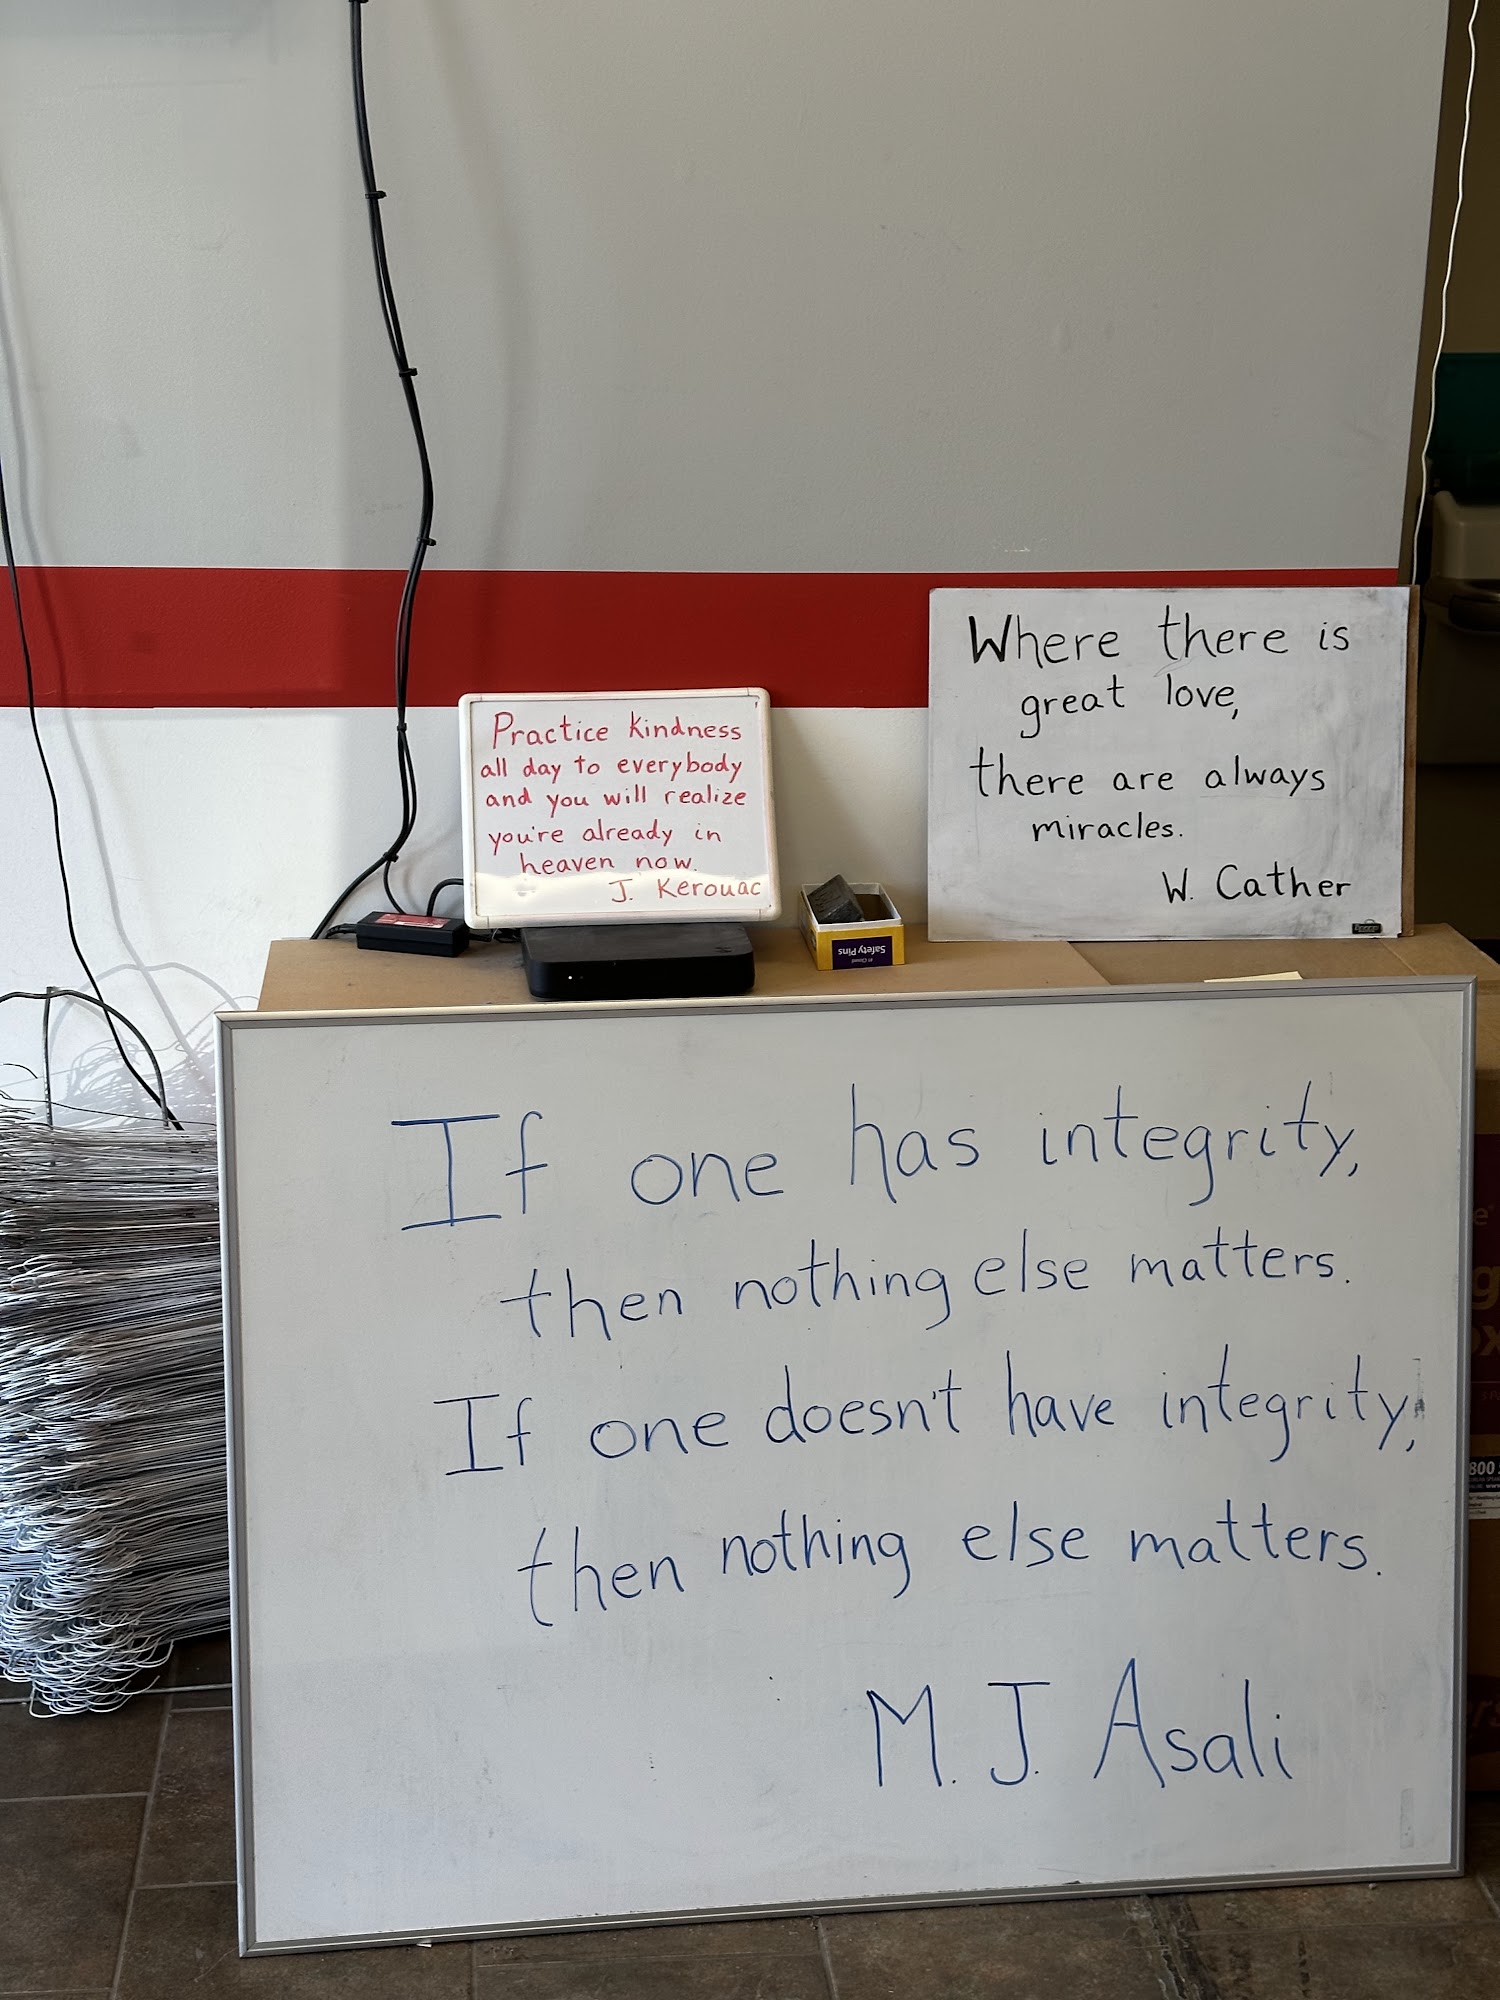 Where there is
great love,
there are always
miracles.
W. Cather
Practice kindness
all day to everybody
and you will realize
you're already in
heaven now.
J. Kerouac
Safety Pins
If one has integrity,
then nothing else matters.
If one doesn't have integrity,
then nothing else matters.
M. J. Asali
800